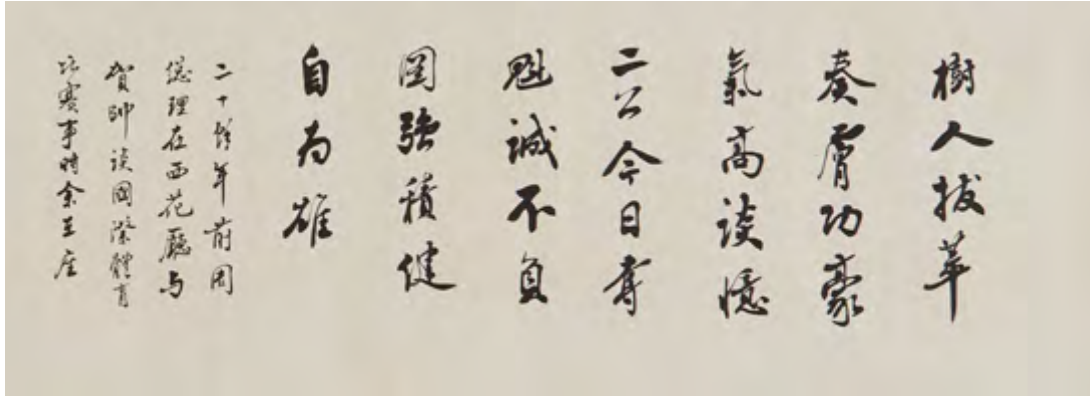 樹人拔萃
奏膚功豪
氣高談憶
二公今日奪
魁誠不負
圖強積健
自为雄
二十餘年前周
總理在西花廳与
賀帥談國際體育
比賽事時余在座